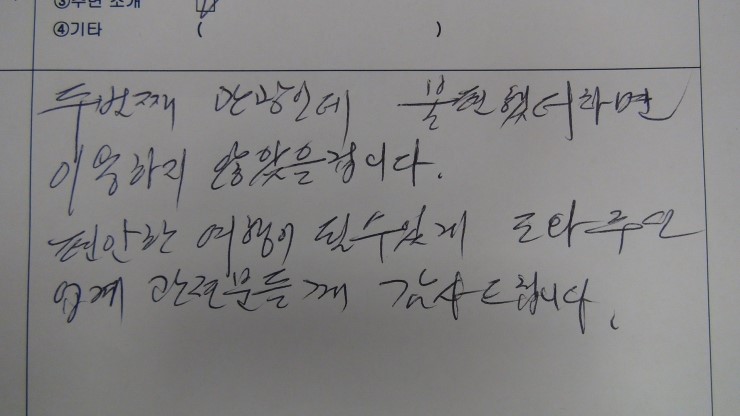 ③주변 소개
④기타 ( )
두번째 관광인데 불편했더라면
이용하지 않았을겁니다.
편안한 여행이 될수있게 도와주신
업계 관련분들께 감사드립니다.